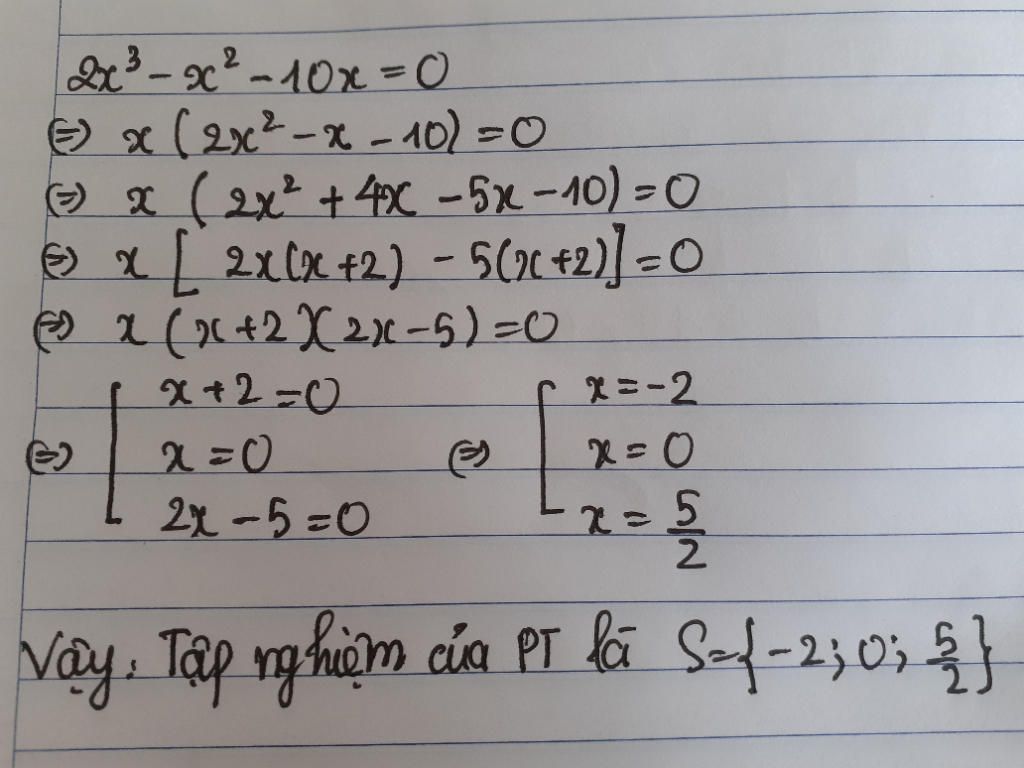 2x³ - x² - 10x = 0
⇔ x (2x² - x - 10) = 0
⇔ x (2x² + 4x - 5x - 10) = 0
⇔ x [2x(x+2) - 5(x+2)] = 0
⇔ x (x+2)(2x-5) = 0
⇔ [ x+2 = 0 ⇔ [ x = -2
x = 0 x = 0
2x - 5 = 0 x = 5/2
Vậy: Tập nghiệm của PT là S={-2; 0; 5/2}